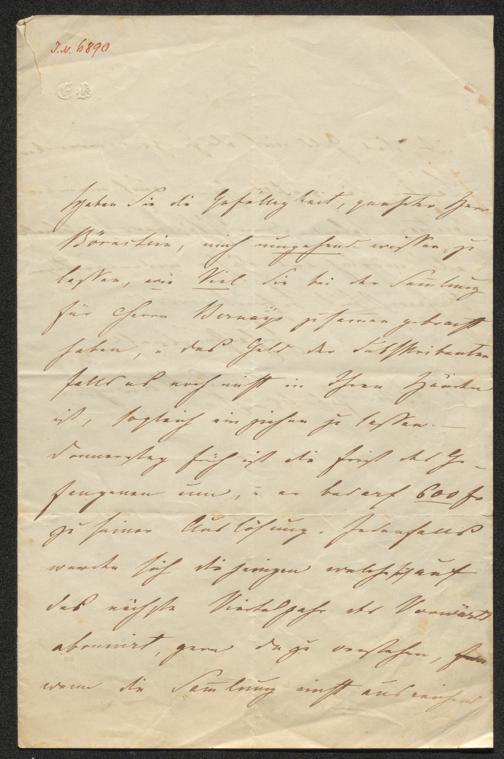 J.N. 6890
Haben Sie die Gefälligkeit, geehrter Herr
Börnstein, mich umgehend wissen zu
lassen, wie Viel Sie bei der Samlung
für Herrn Bernays zusammen gebracht
haben, u das Geld der Subskribenten
falls es noch nicht in Ihren Händen
ist, sogleich einziehen zu lassen. —
Donnerstag früh ist die Frist des Ge-
fangenen um, u er bedarf 600 fr
zu seiner Auslösung. Jedenfalls
werden sich diejenigen welche auf
das nächste Vierteljahr des Vorwärts
abonnirt, gern dazu verstehen,
wenn die Samlung nicht ausreichend